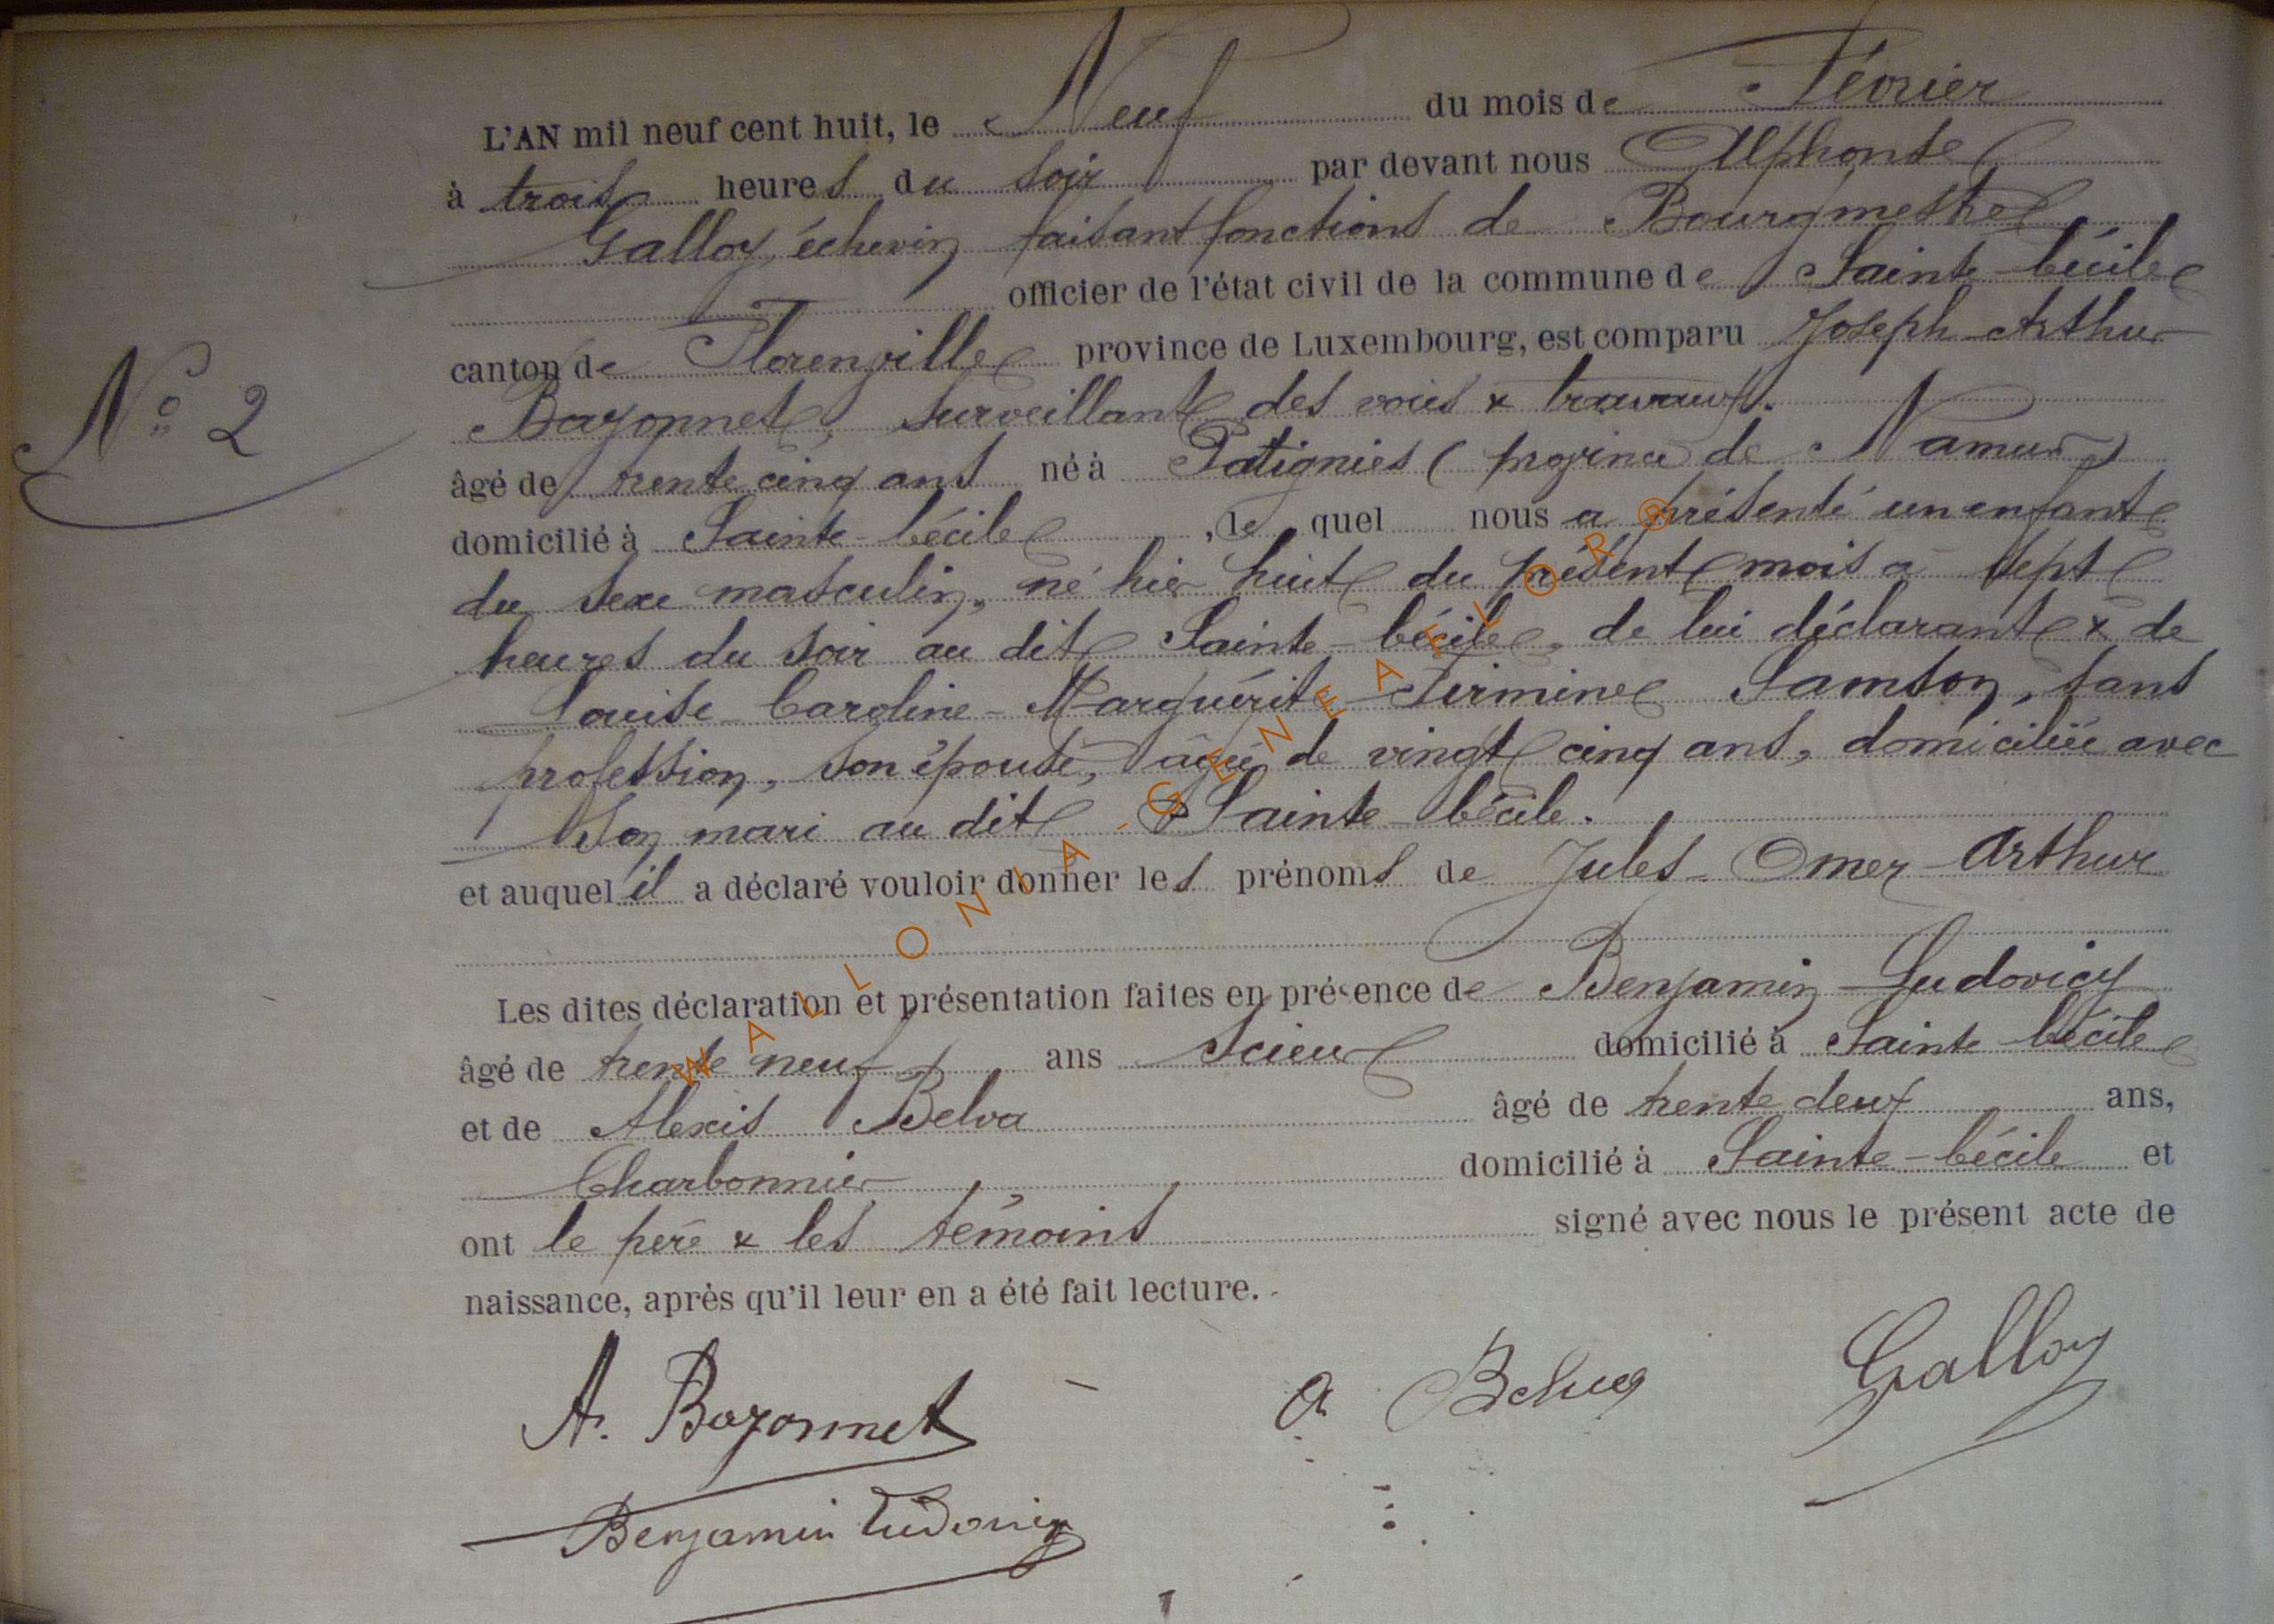 L'AN mil neuf cent huit, le Neuf du mois de Février
à trois heures du soir par devant nous Alphonse
Galloy, échevin faisant fonctions de Bourgmestre
officier de l'état civil de la commune de Sainte-Cécile
canton de Florenville province de Luxembourg, est comparu Joseph-Arthur
Bazonnet, surveillant des voies & travaux.
âgé de trente cinq ans né à Patignies (province de Namur)
N° 2
domicilié à Sainte-Cécile, le quel nous a présenté un enfant
du sexe masculin, né hier huit du présent mois à sept
heures du soir au dit Sainte-Cécile, de lui déclarant & de
Louise-Caroline-Marguérite-Firmine Samson, sans
profession, son épouse, âgée de vingt cinq ans, domiciliée avec
son mari au dit Sainte-Cécile.
et auquel il a déclaré vouloir donner les prénoms de Jules-Omer-Arthur
Les dites déclaration et présentation faites en présence de Benjamin Ludovicy
âgé de trente neuf ans Scieur domicilié à Sainte Cécile
et de Alexis Belva âgé de trente deux ans,
Charbonnier domicilié à Sainte-Cécile et
ont le père & les témoins signé avec nous le présent acte de
naissance, après qu'il leur en a été fait lecture.
A. Bazonnet A Belva Galloy
Benjamin Ludovicy
WALLONIA-GENEAFLOR®